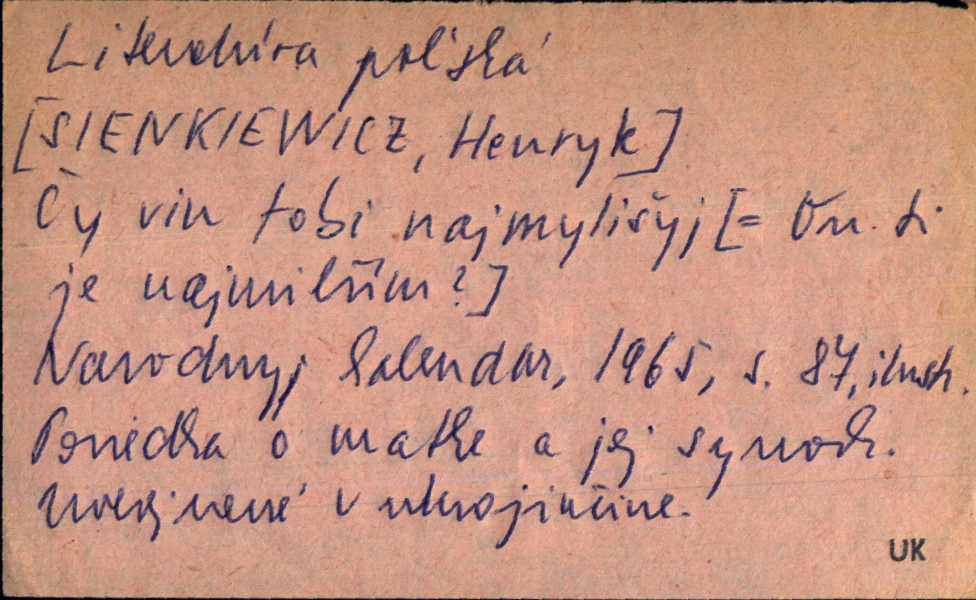 Literatúra poľská
[SIENKIEWICZ, Henryk]
Čy vin tobi najmylišyj [= On ti
je najmilším?]
Narodnyj kalendar, 1965, s. 87, ilustr.
Poviedka o matke a jej synoch.
Uverejnené v ukrajinčine.
UK